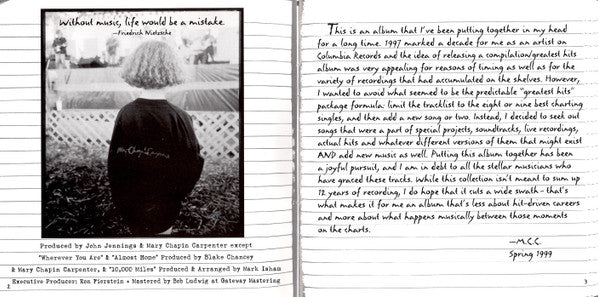 Without music, life would be a mistake.
—Friedrich Nietzsche
Mary Chapin Carpenter
Produced by John Jennings & Mary Chapin Carpenter except
"Wherever You Are" & "Almost Home" Produced by Blake Chancey
& Mary Chapin Carpenter, & "10,000 Miles" Produced & Arranged by Mark Isham
Executive Producer: Ron Fierstein • Mastered by Bob Ludwig at Gateway Mastering
2
This is an album that I've been putting together in my head
for a long time. 1997 marked a decade for me as an artist on
Columbia Records and the idea of releasing a compilation/greatest hits
album was very appealing for reasons of timing as well as for the
variety of recordings that had accumulated on the shelves. However,
I wanted to avoid what seemed to be the predictable "greatest hits"
package formula: limit the tracklist to the eight or nine best charting
singles, and then add a new song or two. Instead, I decided to seek out
songs that were a part of special projects, soundtracks, live recordings,
actual hits and whatever different versions of them that might exist
AND add new music as well. Putting this album together has been
a joyful pursuit, and I am in debt to all the stellar musicians who
have graced these tracks. While this collection isn't meant to sum up
12 years of recording, I do hope that it cuts a wide swath - that's
what makes it for me an album that's less about hit-driven careers
and more about what happens musically between those moments
on the charts.
—M.C.C.
Spring 1999
3